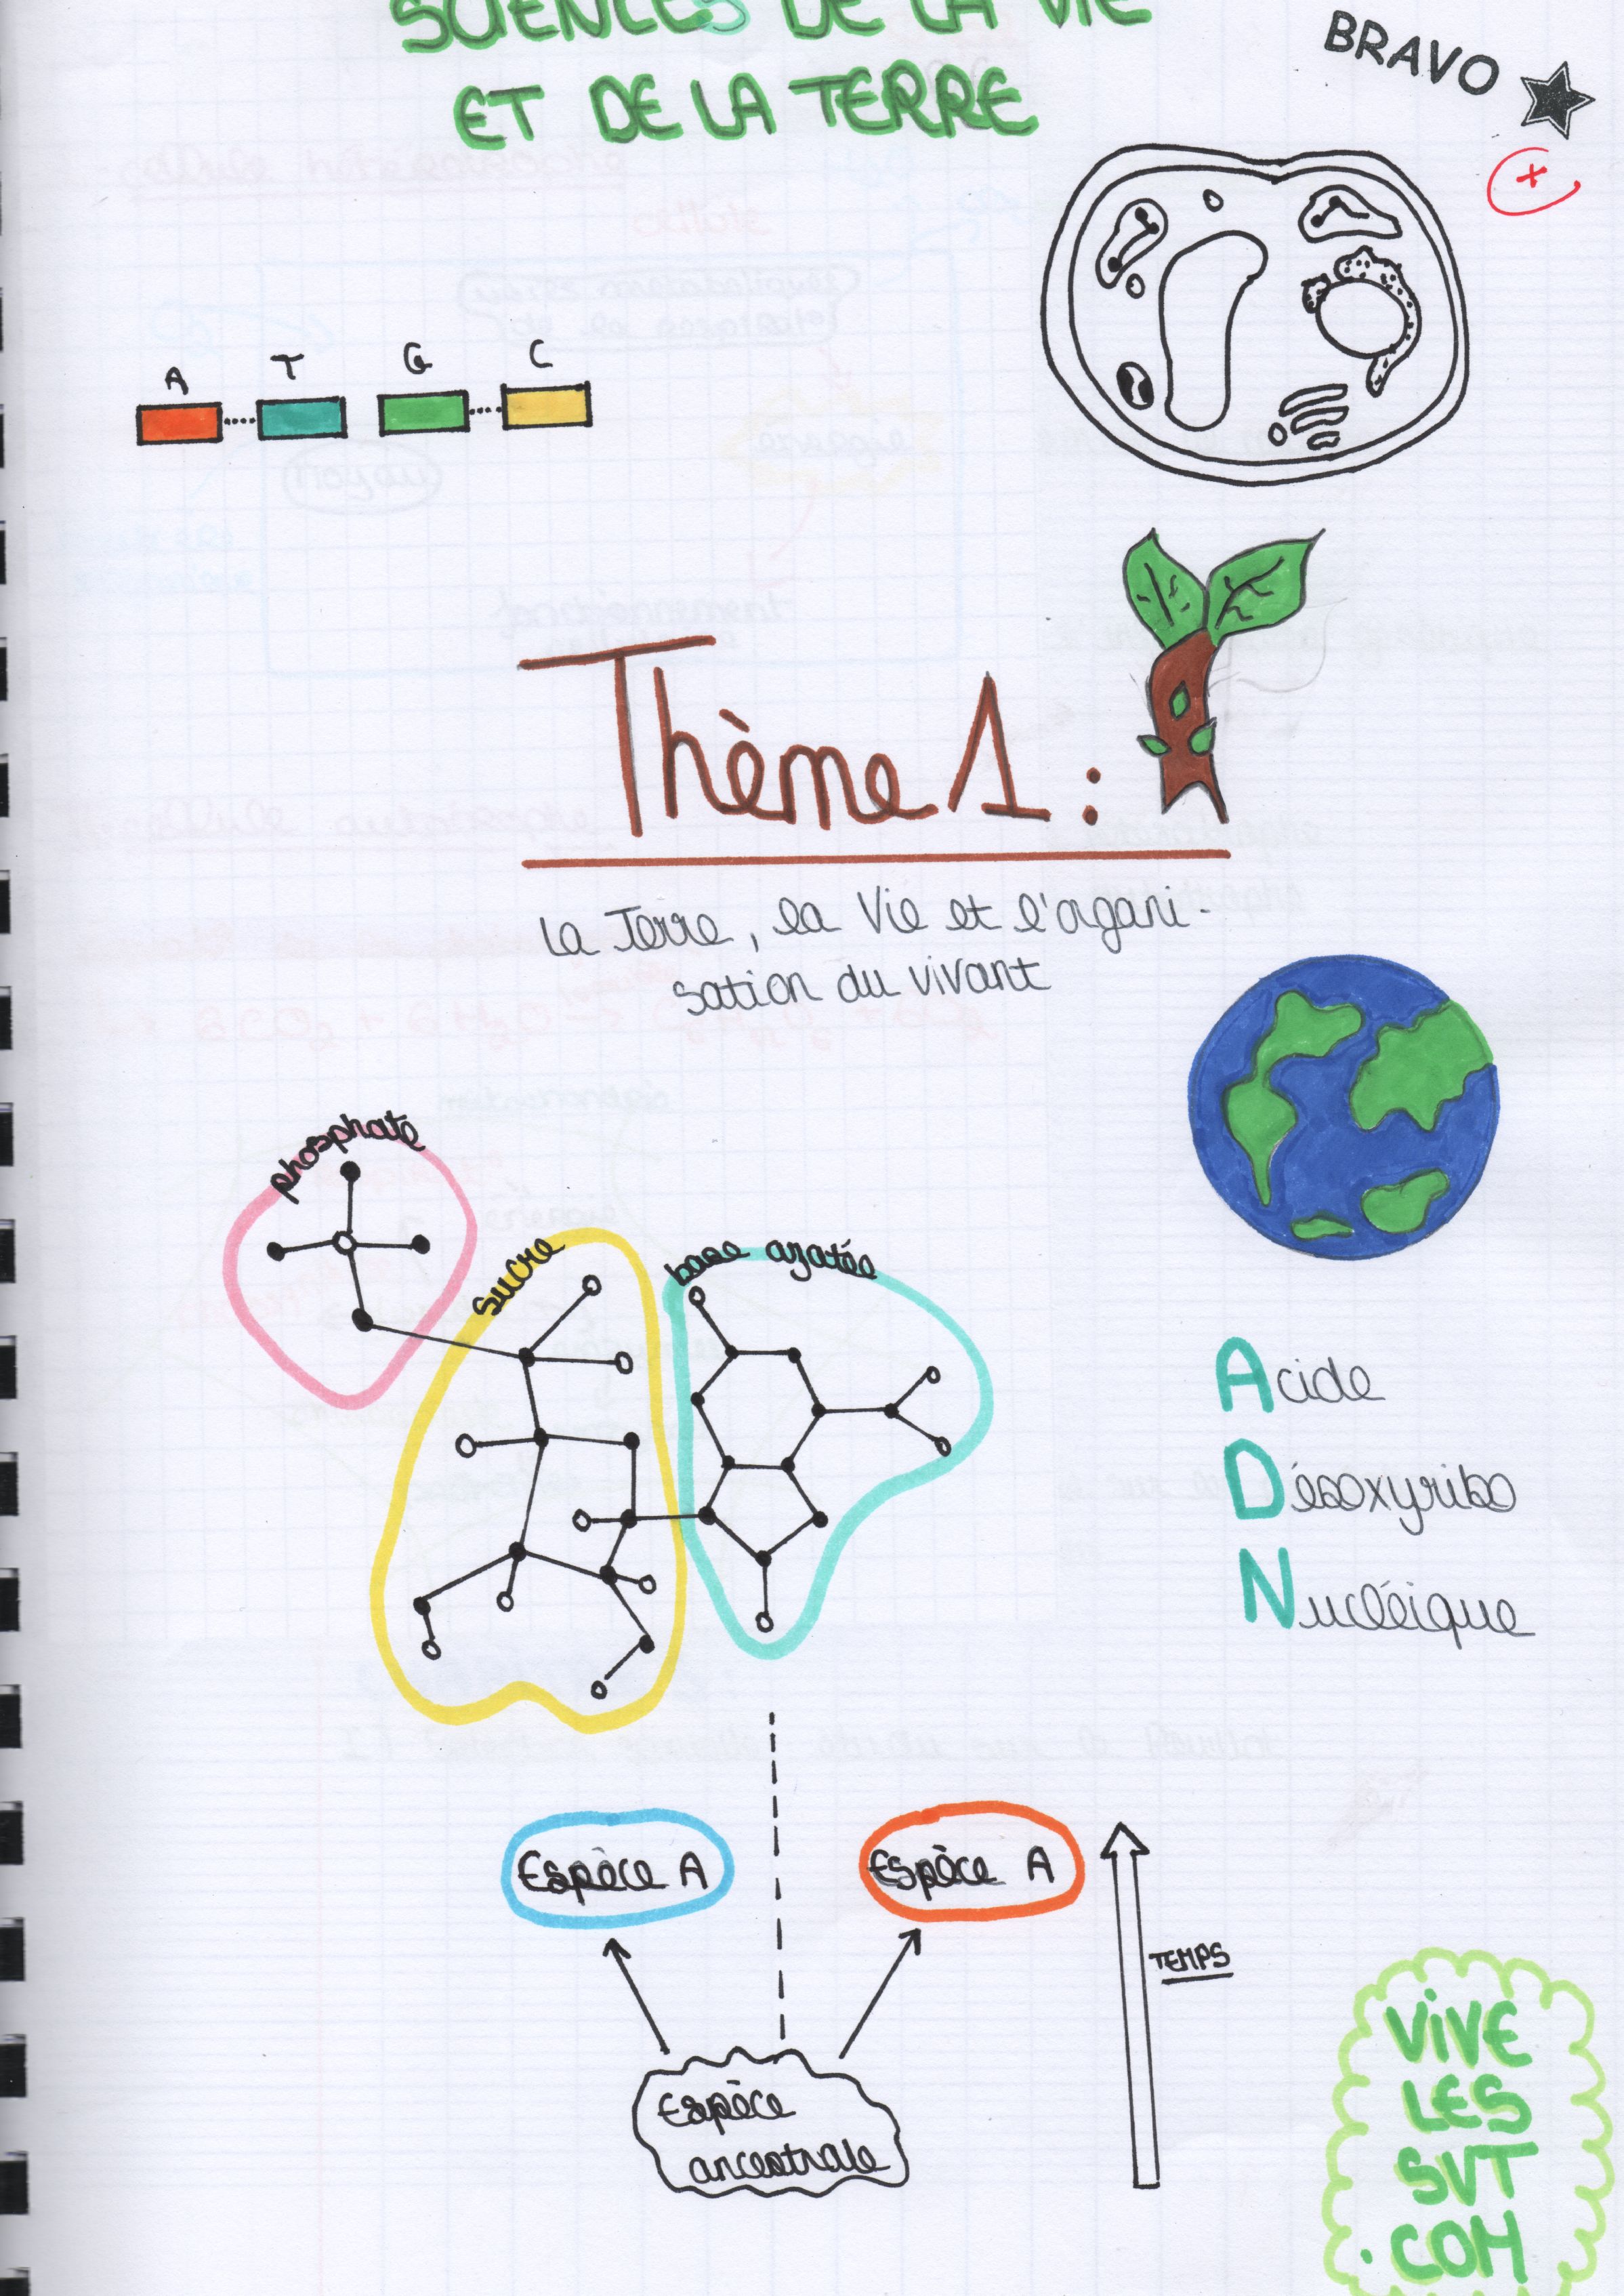 SCIENCES DE LA VIE
ET DE LA TERRE
BRAVO
A T G C
Thème 1 :
La Terre, la Vie et l'organi-
sation du vivant
phosphate
sucre
base azotée
Acide
Désoxyribo
Nucléique
Espèce A
Espèce A
TEMPS
Espèce
ancestrale
VIVE
LES
SVT
.COM